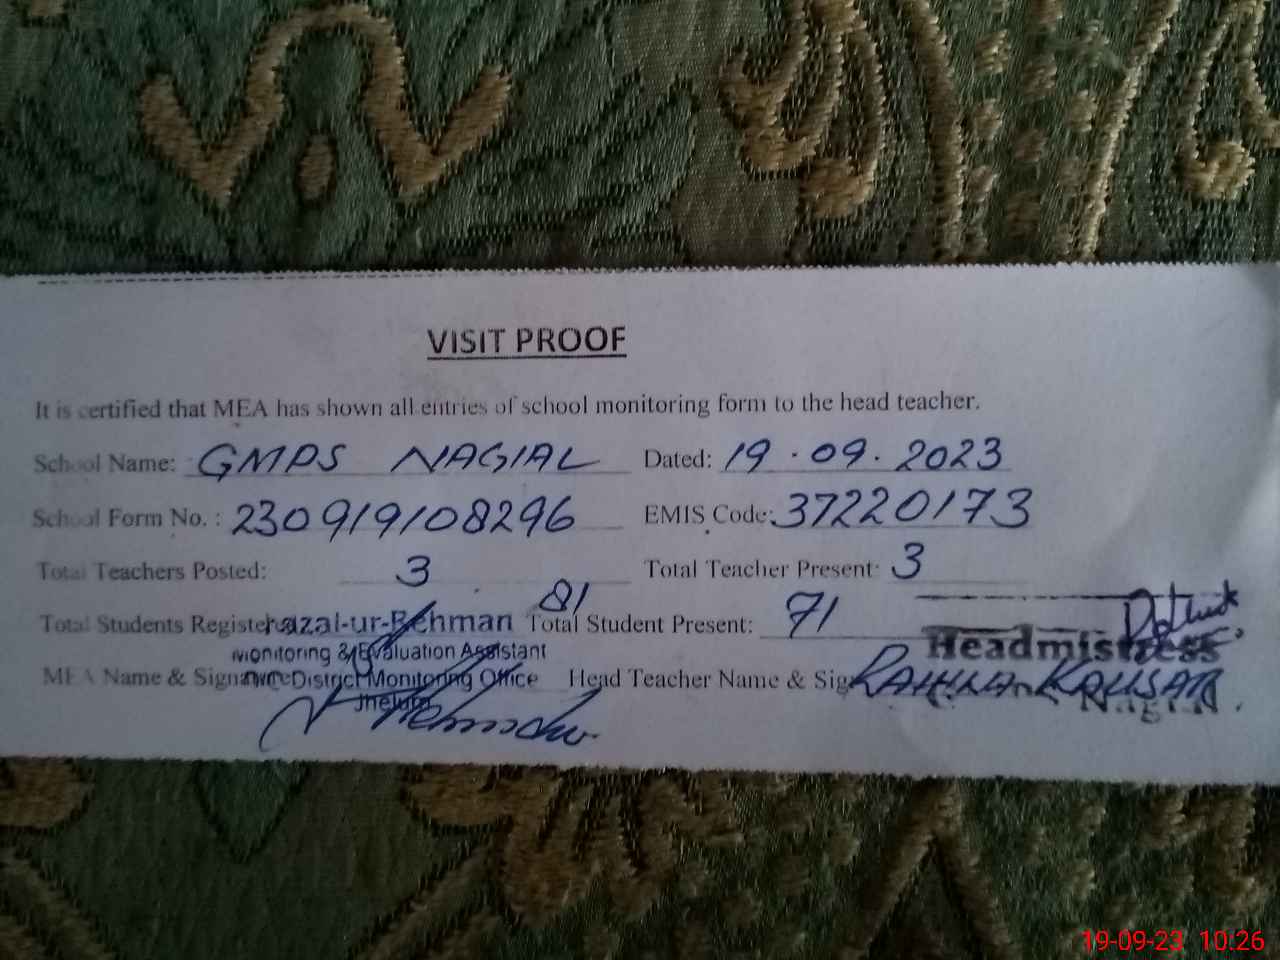 VISIT PROOF
It is certified that MEA has shown all entries of school monitoring form to the head teacher.
School Name: GMPS NAGIAL Dated: 19.09.2023
School Form No. : 230919108296 EMIS Code: 37220173
Total Teachers Posted: 3 Total Teacher Present: 3
Total Students Registe 81 Total Student Present: 71
azal-ur-Rehman
Monitoring & Evaluation Assistant
District Monitoring Office
Jhelum
MEA Name & Sign Head Teacher Name & Sig KAUSAR
Headmistress
Nagial
19-09-23 10:26